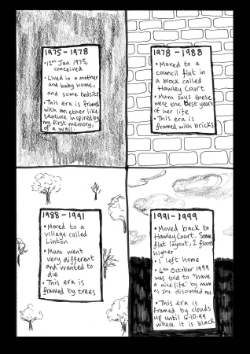 1975 - 1978
• 12th Jan 1975,
conceived
• Lived in a mother
and baby home,
and some bedsits
• This era is framed
with an
texture inspired by
my first memory,
of a wall.
1978 - 1988
• Moved to a
council flat in
a block called
Hawley Court
• Mum says these
were the best years
of her life
• This era is
framed with bricks
1988 - 1991
• Moved to a
village called
Linton
• Mum went
very different
and wanted
to die
• This era is
framed by trees
1991 - 1999
• Moved back to
Hawley Court. Same
flat layout, 2 floors
higher
• I left home
• 6th October 1999
was told to "have
a nice life" by mum
as she disowned me.
• This era is
framed by clouds
up until 6-10-99
when it is black